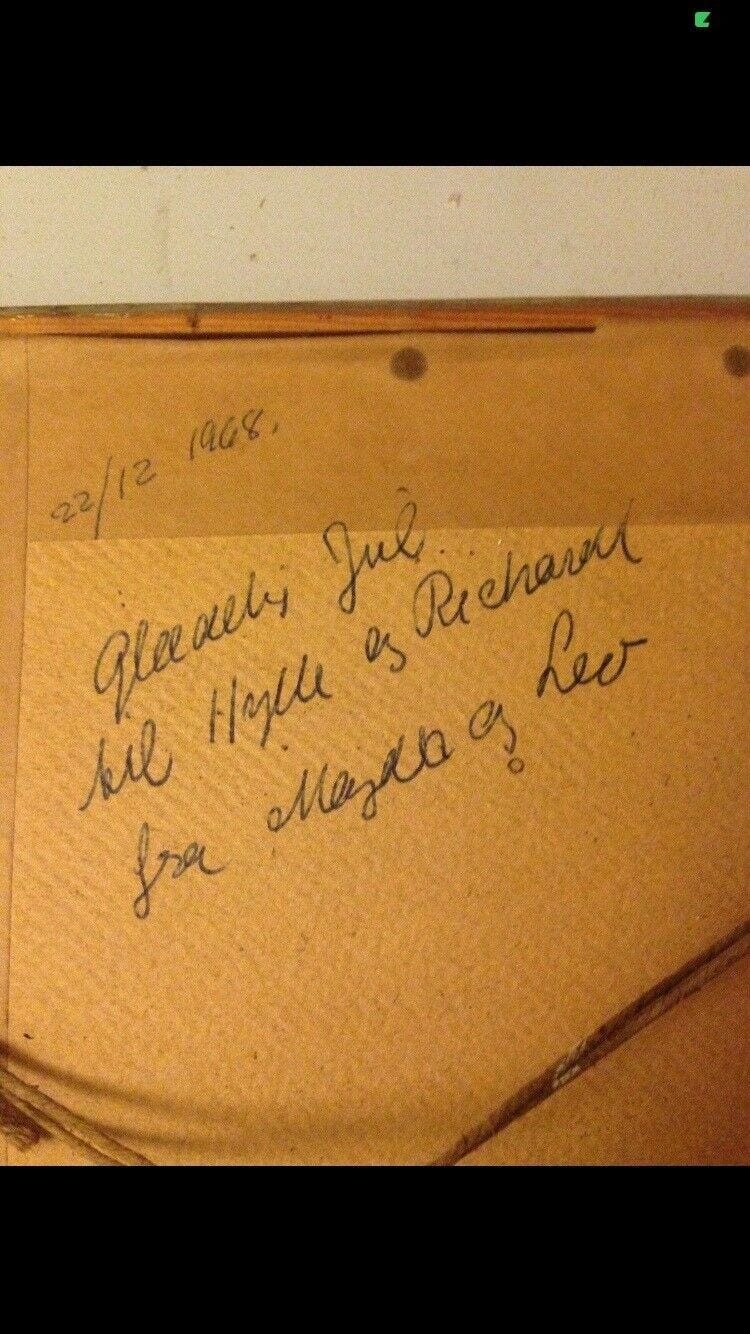 22/12 1968.
Glædelig Jul
til Hylle og Richardt
fra Magda og Leo